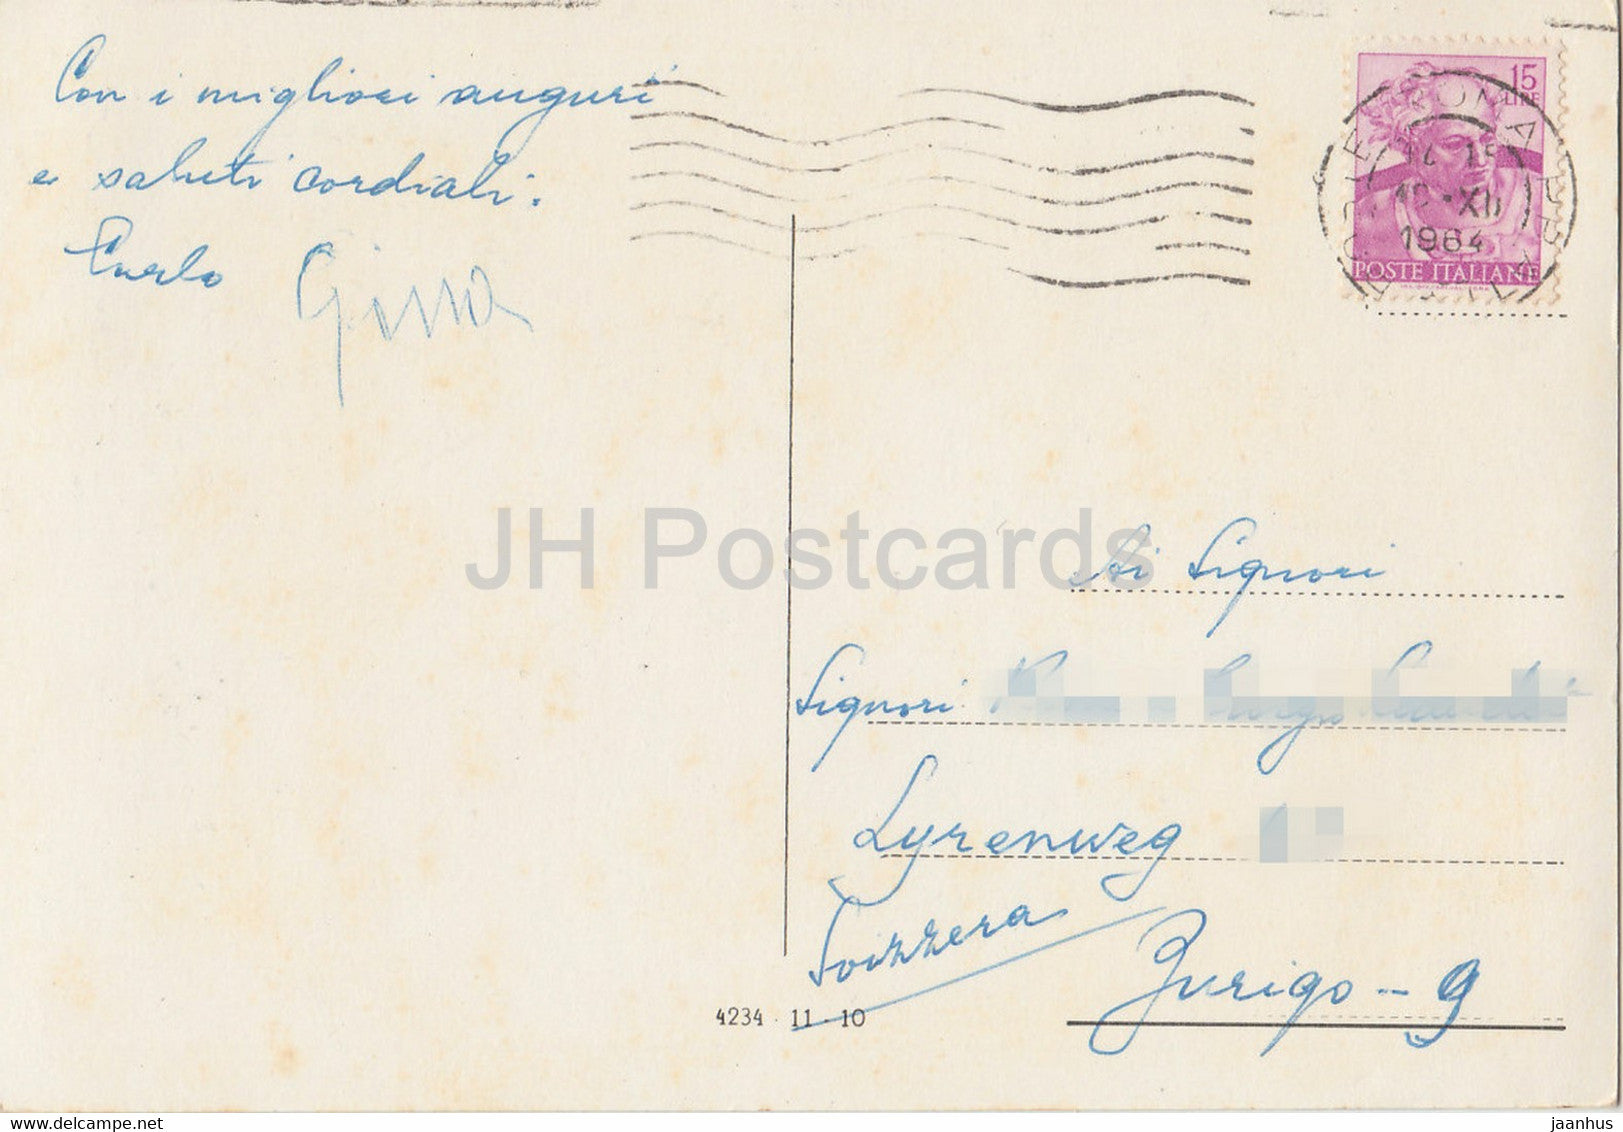 Con i migliori auguri
e saluti cordiali.
Carlo Gina
15
LIRE
ROMA
19·XII
1964
POSTE ITALIANE
JH Postcards
Ai Signori
Signori
Lyrenweg
Svizzera
Zurigo - 9
4234 · 11 · 10
jaanhus